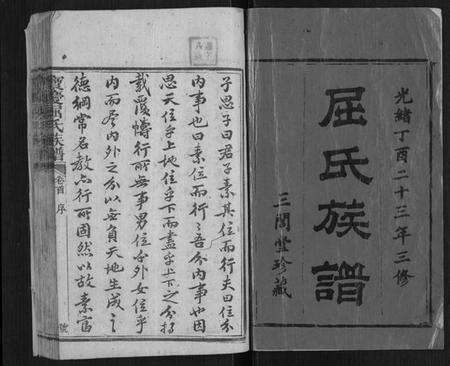 光緒丁酉二十三年三修
屈氏族譜
三閭堂珍藏
子思子曰君子素其位而行夫曰位分
內事也曰素位而行行吾分內事也因
思天位乎上地位乎下而盡乎上下之分持
載覆幬行所無事男位乎外女位乎
內而尽內外之分以無負天地生成之
德綱常名教亦行所固然以故素富
屈氏族譜
卷首
序